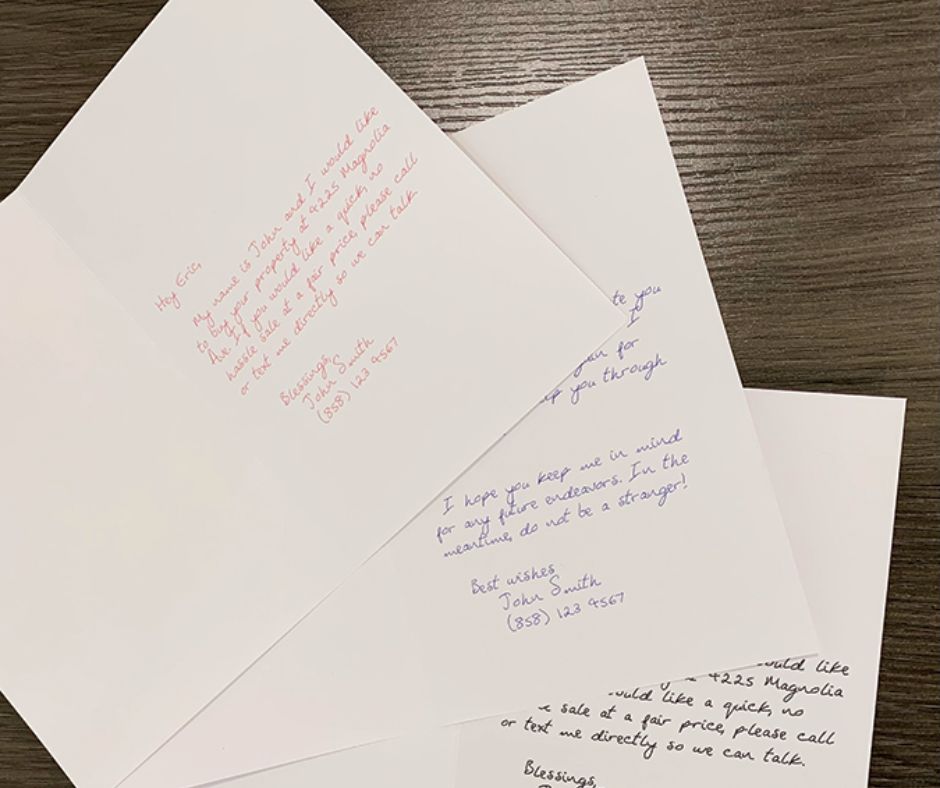 Hey Eric,
My name is John and I would like
to buy your property at 4225 Magnolia
Ave. If you would like a quick, no
hassle sale at a fair price, please call
or text me directly so we can talk.
Blessings,
John Smith
(858) 123 4567
te you
I
for
up you through
I hope you keep me in mind
for any future endeavors. In the
meantime, do not be a stranger!
Best wishes,
John Smith
(858) 123 4567
ould like
4225 Magnolia
ould like a quick, no
sale at a fair price, please call
or text me directly so we can talk.
Blessings,